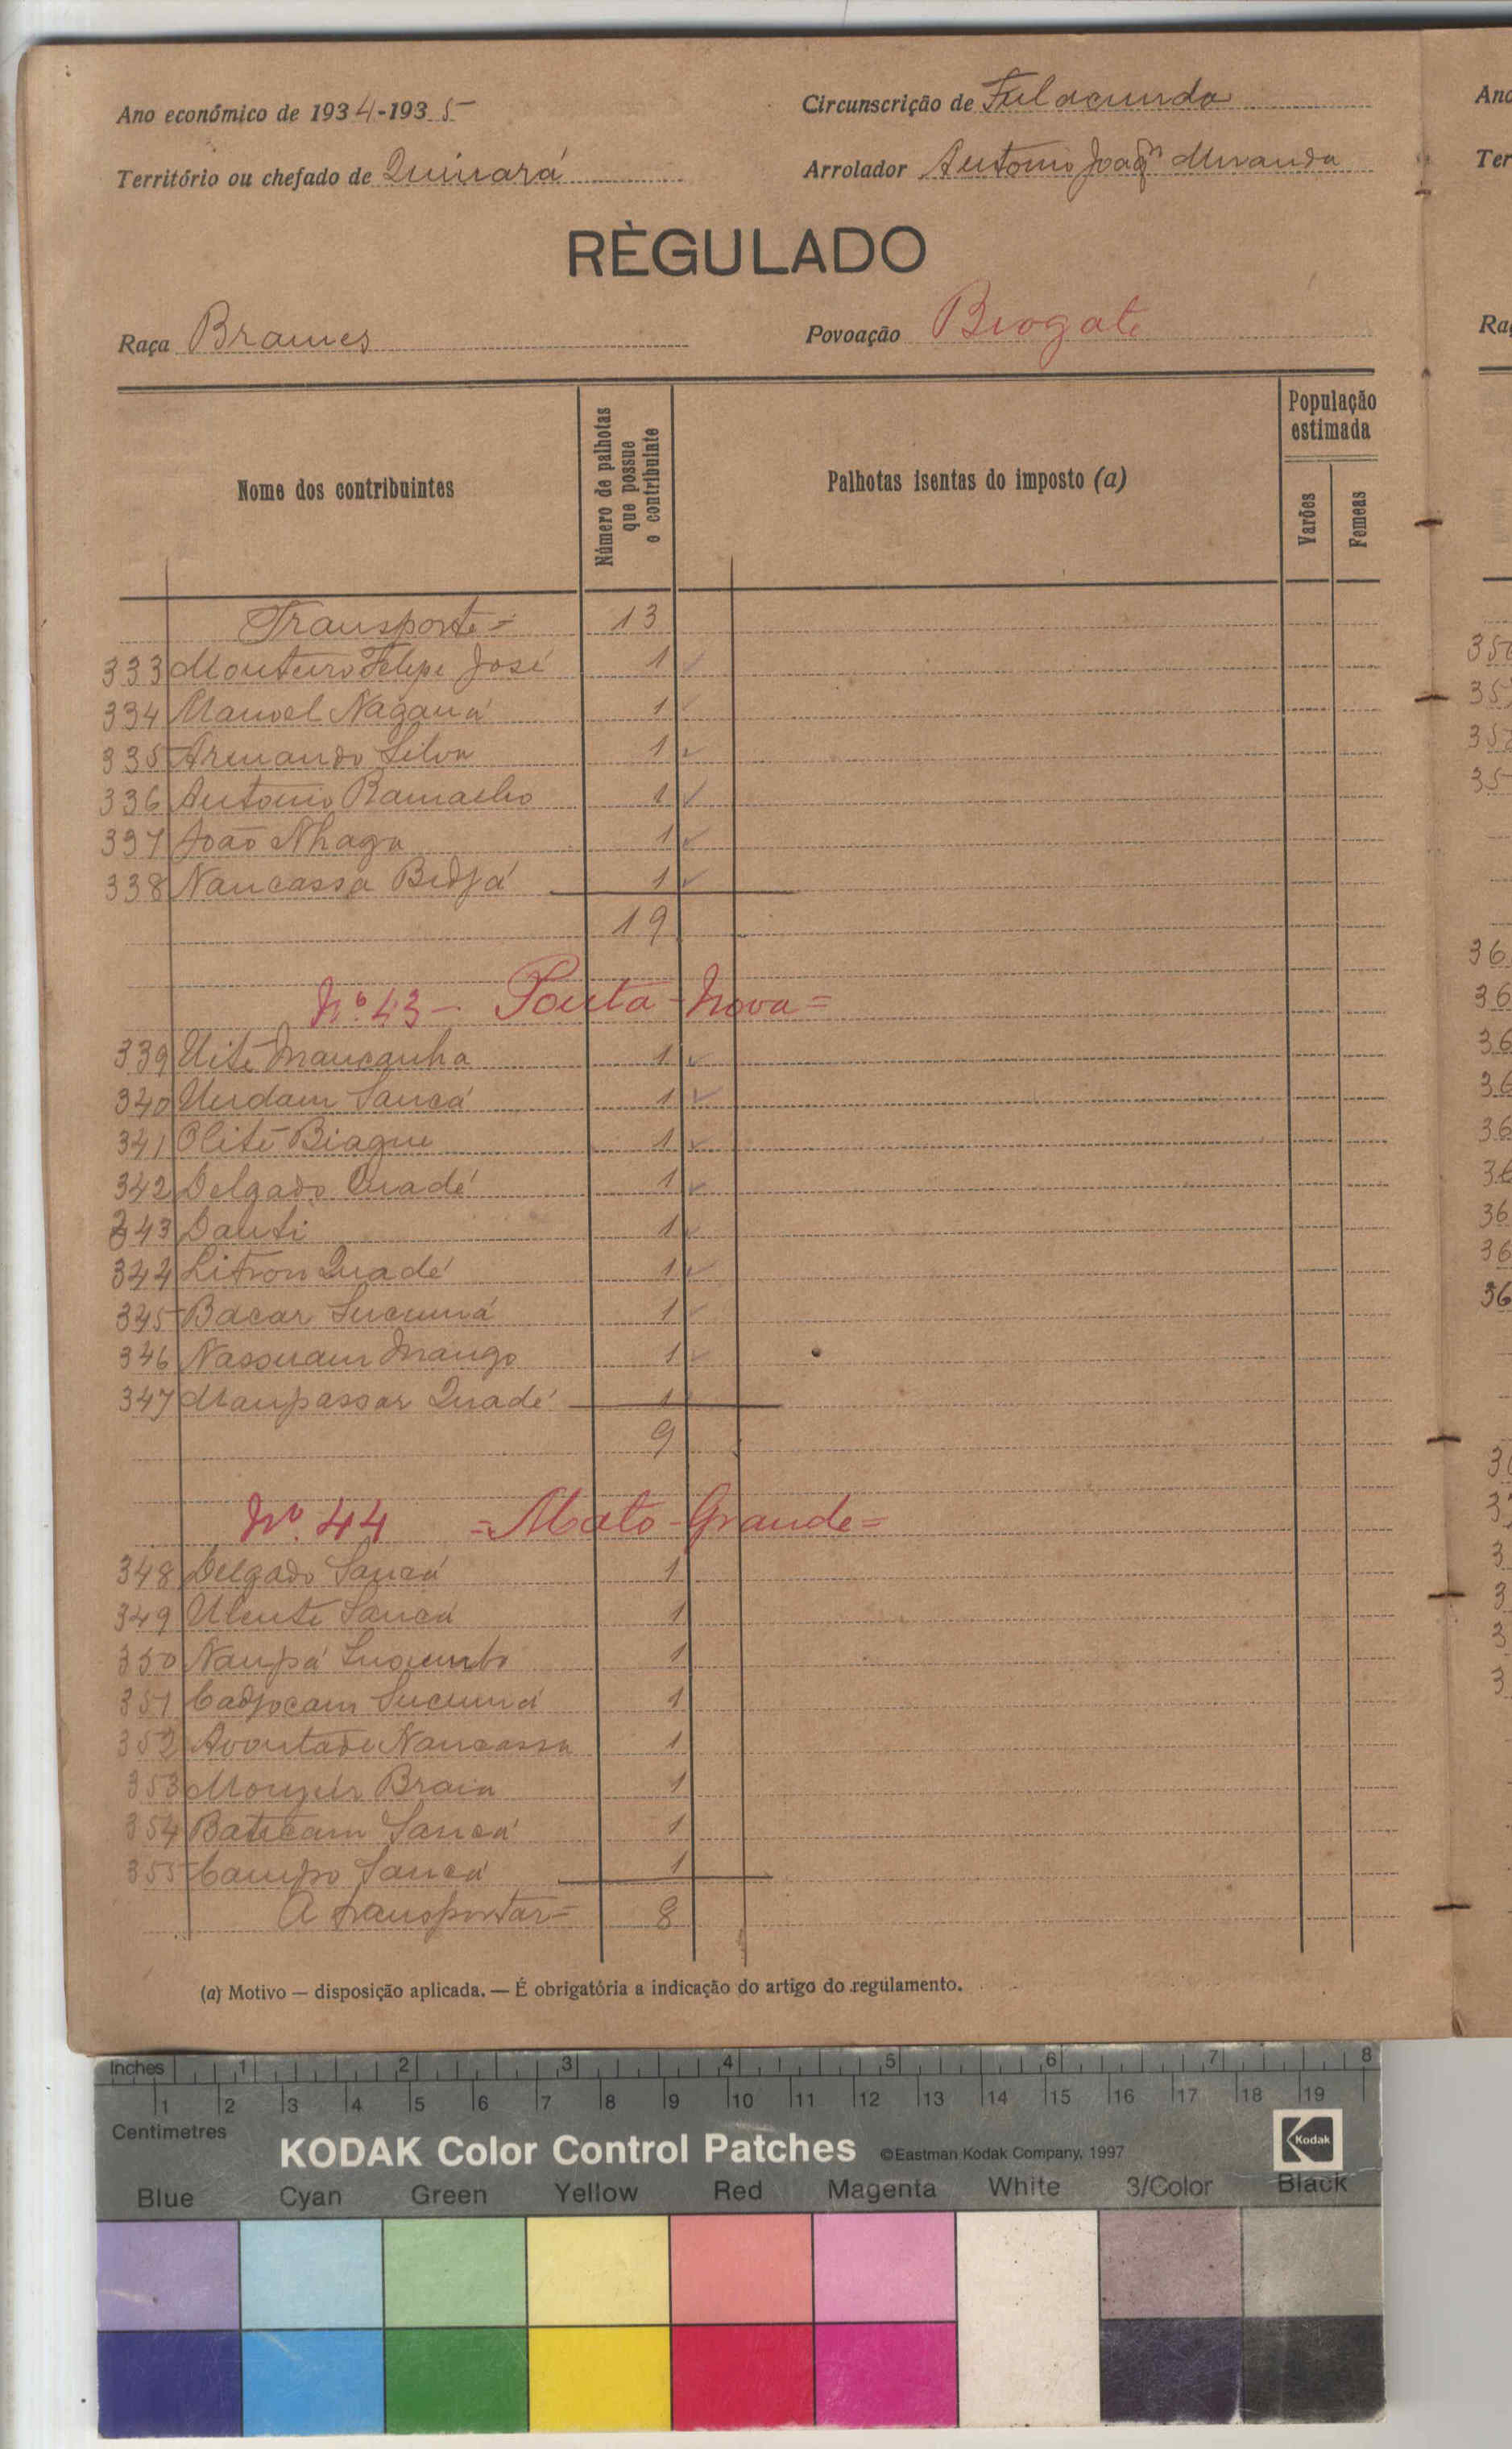 Ano económico de 1934-1935
Circunscrição de Fulacunda
Território ou chefado de Quinará
Arrolador Antonio Joaqm Miranda
RÈGULADO
Raça Brames
Povoação Biogate
Nome dos contribuintes
Número de palhotas que possue o contribuinte
Palhotas isentas do imposto (a)
População estimada
Varões
Femeas
Transporte = 13
333 Monteiro Felipe José 1
334 Manoel Nagana 1
335 Armando Silva 1
336 Antonio Ramalho 1
337 João Nhaga 1
338 Nancassa Bidjá 1
19
Nº 43 - Ponta - Nova =
339 Uité Mancanha 1
340 Undam Sancá 1
341 Olité Biague 1
342 Delgado Quadé 1
343 Dauti 1
344 Litron Quadé 1
345 Bacar Sucuma 1
346 Nassuam Mango 1
347 Maupassar Quadé 1
9
Nº 44 = Mato - Grande =
348 Delgado Sancá 1
349 Ulenté Sancá 1
350 Naupá 1
351 Cadjocam Sucumá 1
352 Avontade Nancassa 1
353 Braia 1
354 Batecam Sancá 1
355 Campo Sancá 1
A transportar = 8
(a) Motivo — disposição aplicada. — É obrigatória a indicação do artigo do regulamento.
Inches 1 2 3 4 5 6 7 8
1 2 3 4 5 6 7 8 9 10 11 12 13 14 15 16 17 18 19
Centimetres
KODAK Color Control Patches ©Eastman Kodak Company, 1997 Kodak
Blue Cyan Green Yellow Red Magenta White 3/Color Black